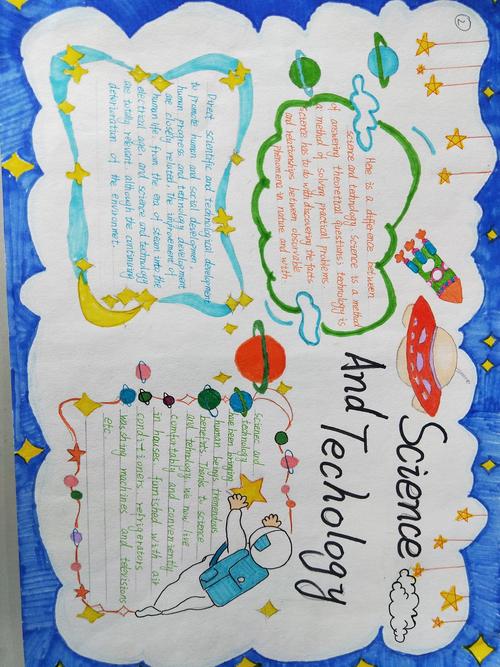 ②
Science
And Techology
Here is a difference between
science and technology. Science is a method
of answering theoretical questions; technology is
a method of solving practical problems.
Science has to do with discovering the facts
and relationships between observable
phenomena in nature and with
Direct scientific and technological development
to promote human and social developmen,
human progress and technology development
are closely related. The improvement of
human life from the end of steam into the
electrical age, and science and technology
are totally relevant, although the continuing
deterioration of the environment.
Science and
technology
have been bringing
human beings tremendous
benefits. Thanks to science
and technology we now live
comfortably and conveniently
in houses furnished with air
conditioners, refrigerators
washing machines and televisions
etc